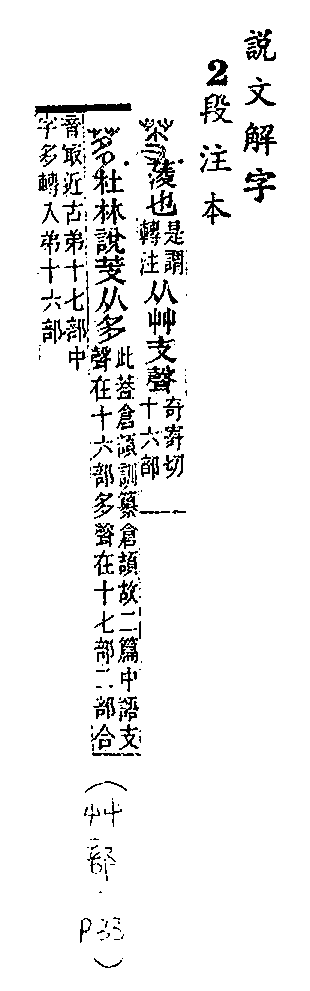 說文解字
2段注本
芰 蔆也是謂轉注从艸支聲奇寄切十六部
茤 杜林說芰从多此葢倉頡訓纂倉頡故二篇中語支聲在十六部多聲在十七部二部合
音最近古弟十七部中字多轉入弟十六部
(艸部.P33)